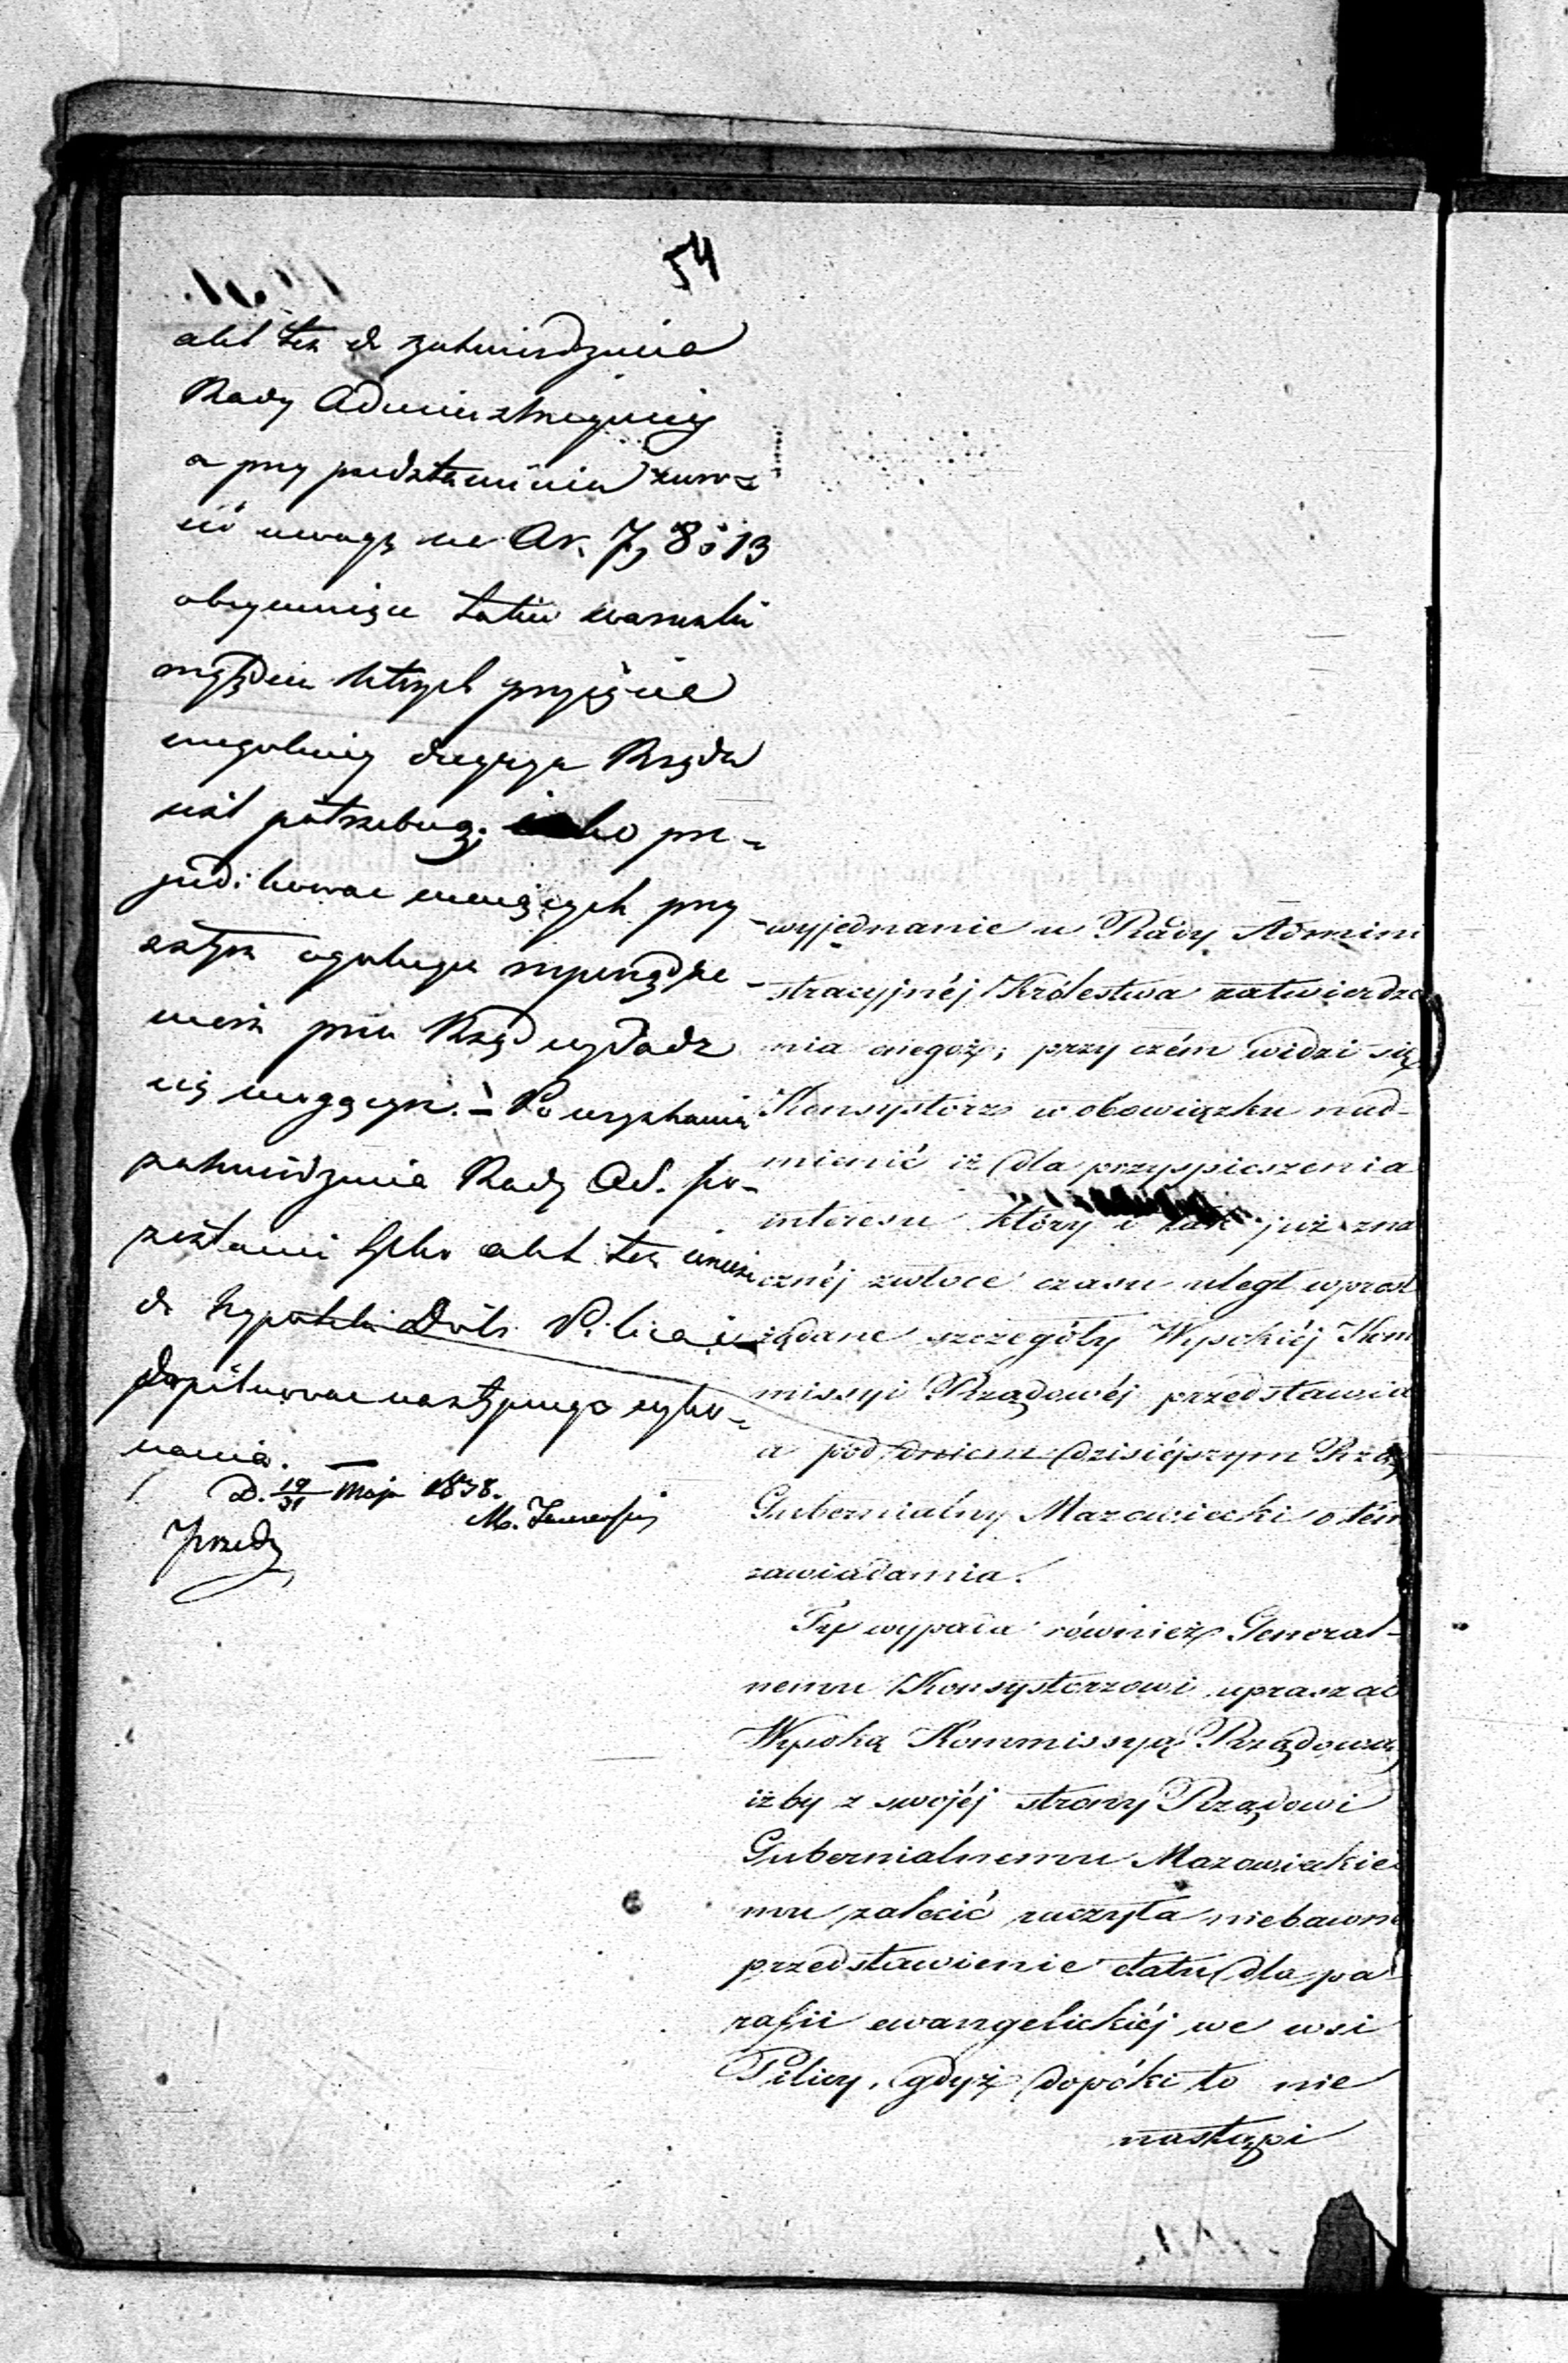 54
akt ten do zatwierdzenia
Rady Administracyjnéj
a przy przedstawieniu zwró=
cić uwagę na Ar. 7, 8 i 13
obejmujące takie warunki
względem których przyjęcia
decyzya Rządu
jest potrzebną; jako pre=
judikować mogących przy=
szłym ogólnym rozporządze=
niom przez Rząd wydadź
się mogącym. – Po uzyskaniu
zatwierdzenia Rady Ad. po=
zostanie tylko akt ten wnieść
do hypoteki Dóbr Pilica i
dopilnować następnego wyko=
nania. —
D. 19/31 Maja 1838.
M.
wyjednanie u Rady Admini
stracyjnéj Królestwa zatwierdze
nia onegoż; przy czém widzi się
Konsystorz w obowiązku nad-
mienić iż dla przyspieszenia
interesu który i tak już zna
cznéj zwłoce czasu uległ wprost
żądane szczegóły Wysokiéj Kom
missyi Rządowéj przedstawia
a pod dniem dzisiéjszym Rząd
Gubernialny Mazowiecki o tém
zawiadamia.
Tu wypada również General-
nemu Konsystorzowi upraszać
Wysoką Kommissyą Rządową
iżby z swojéj strony Rządowi
Gubernialnemu Mazowieckie
mu zalecić raczyła niebawne
przedstawienie etatu dla pa
rafii ewangelickiéj we wsi
Pilicy, gdyż dopóki to nie
nastąpi